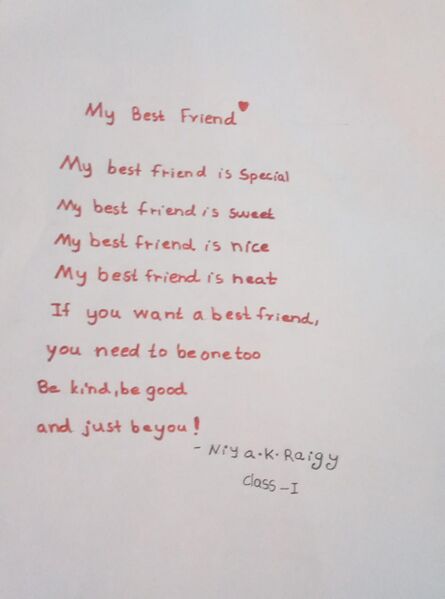 My Best Friend
My best friend is Special
My best friend is sweet
My best friend is nice
My best friend is neat
If you want a best friend,
you need to be one too
Be kind, be good
and just be you!
- Niya.K.Raigy
Class - I